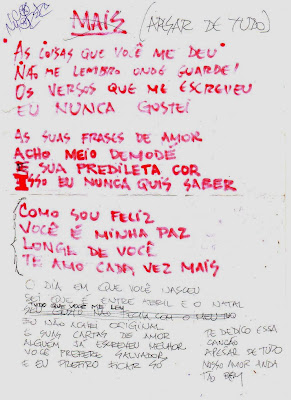 MAIS (APESAR DE TUDO)
AS COISAS QUE VOCÊ ME DEU
NÃO ME LEMBRO ONDE GUARDEI
OS VERSOS QUE ME ESCREVEU
EU NUNCA GOSTEI
AS SUAS FRASES DE AMOR
ACHO MEIO DEMODÊ
E SUA PREDILETA COR
ISSO EU NUNCA QUIS SABER
COMO SOU FELIZ
VOCÊ É MINHA PAZ
LONGE DE VOCÊ
TE AMO CADA VEZ MAIS
O DIA EM QUE VOCÊ NASCEU
SEI QUE É ENTRE ABRIL E O NATAL
TUDO QUE VOCÊ ME LEU
SEU GOSTO NÃO COM O MEU
EU NÃO ACHEI ORIGINAL
E SUAS CARTAS DE AMOR
ALGUÉM JÁ ESCREVEU MELHOR
VOCÊ PREFERE SALVADOR
E EU PREFIRO FICAR SÓ
TE DEDICO ESSA
CANÇÃO
APESAR DE TUDO
NOSSO AMOR ANDA
TÃO BEM